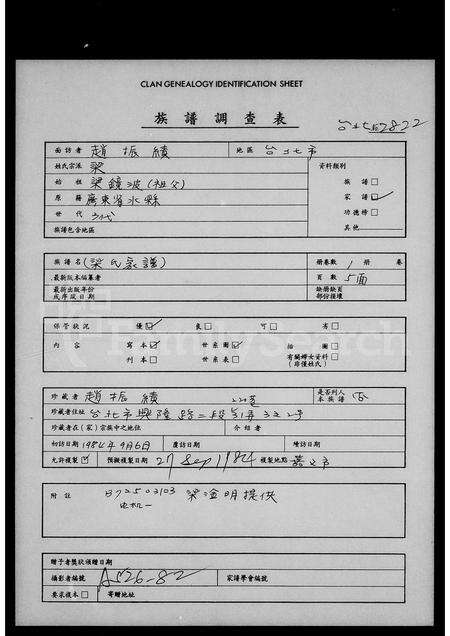 CLAN GENEALOGY IDENTIFICATION SHEET
族譜調查表
台北52822
面訪者 趙振績 地區 台北市
姓氏宗派 梁 資料類別
始祖 梁鏡波(祖父) 族譜□
原籍 廣東省水縣 家譜☑
世代 3代 功德榜□
族譜包含地區 其他
族譜名 (梁氏家譜) 冊卷數 1 冊 卷
最新版本編纂者 頁數 5面
最新出版年份或序跋日期 缺冊缺頁部份損壞
保管狀況 優☑ 良□ 可□ 劣□
內容 寫本☑ 世系圖☑ 插圖□
刊本□ 世系表□ 有關婦女資料(非僅姓氏)□
珍藏者 趙振績 是否列入本族譜 否
珍藏者住址 台北市興隆路二段220巷
珍藏者在(家)宗族中之地位 介紹者
初訪日期 1984年9月6日 覆訪日期 續訪日期
允許複製☑ 預擬複製日期 27 Sep 1984 複製地點 嘉義市
附註 B72503103 梁淦明提供
贈予者獎狀頒贈日期
攝影者編號 AS26-82 家譜學會編號
要求複本□ 寄贈地址
FamilySearch